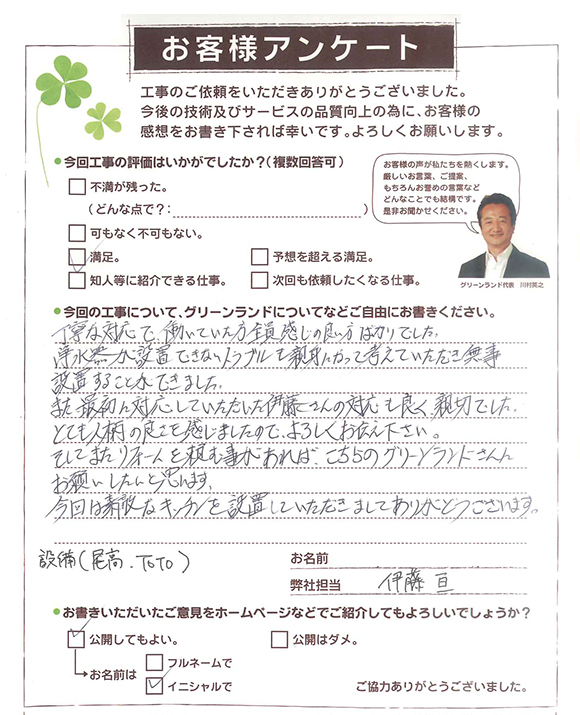 お客様アンケート
工事のご依頼をいただきありがとうございました。
今後の技術及びサービスの品質向上の為に、お客様の
感想をお書き下されば幸いです。よろしくお願いします。
●今回工事の評価はいかがでしたか?(複数回答可)
お客様の声が私たちを熱くします。
厳しいお言葉、ご提案、
もちろんお誉めの言葉など
どんなことでも結構です。
是非お聞かせください。
グリーンランド代表 川村英之
不満が残った。
(どんな点で?: )
可もなく不可もない。
満足。 予想を超える満足。
知人等に紹介できる仕事。 次回も依頼したくなる仕事。
●今回の工事について、グリーンランドについてなどご自由にお書きください。
丁寧な対応で、働いていた方全員感じの良い方ばかりでした。
浄水器が設置できないトラブルも親身になって考えていただき無事
設置することができました。
また最初に対応していただいた伊藤さんの対応も良く、親切でした。
とても人柄の良さを感じましたので、よろしくお伝え下さい。
そしてまたリフォームを頼む事があれば、こちらのグリーンランドさんに
お願いしたいと思います。
今回は素敵なキッチンを設置していただきましてありがとうございます。
設備(尾高.TOTO)
お名前
弊社担当 伊藤 亘
●お書きいただいたご意見をホームページなどでご紹介してもよろしいでしょうか?
公開してもよい。 公開はダメ。
お名前は フルネームで
イニシャルで
ご協力ありがとうございました。